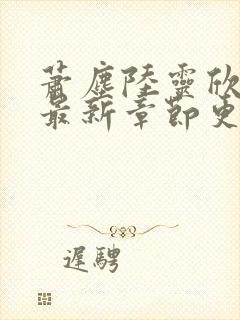 萧尘陆灵欣
最新章节更
遲騁